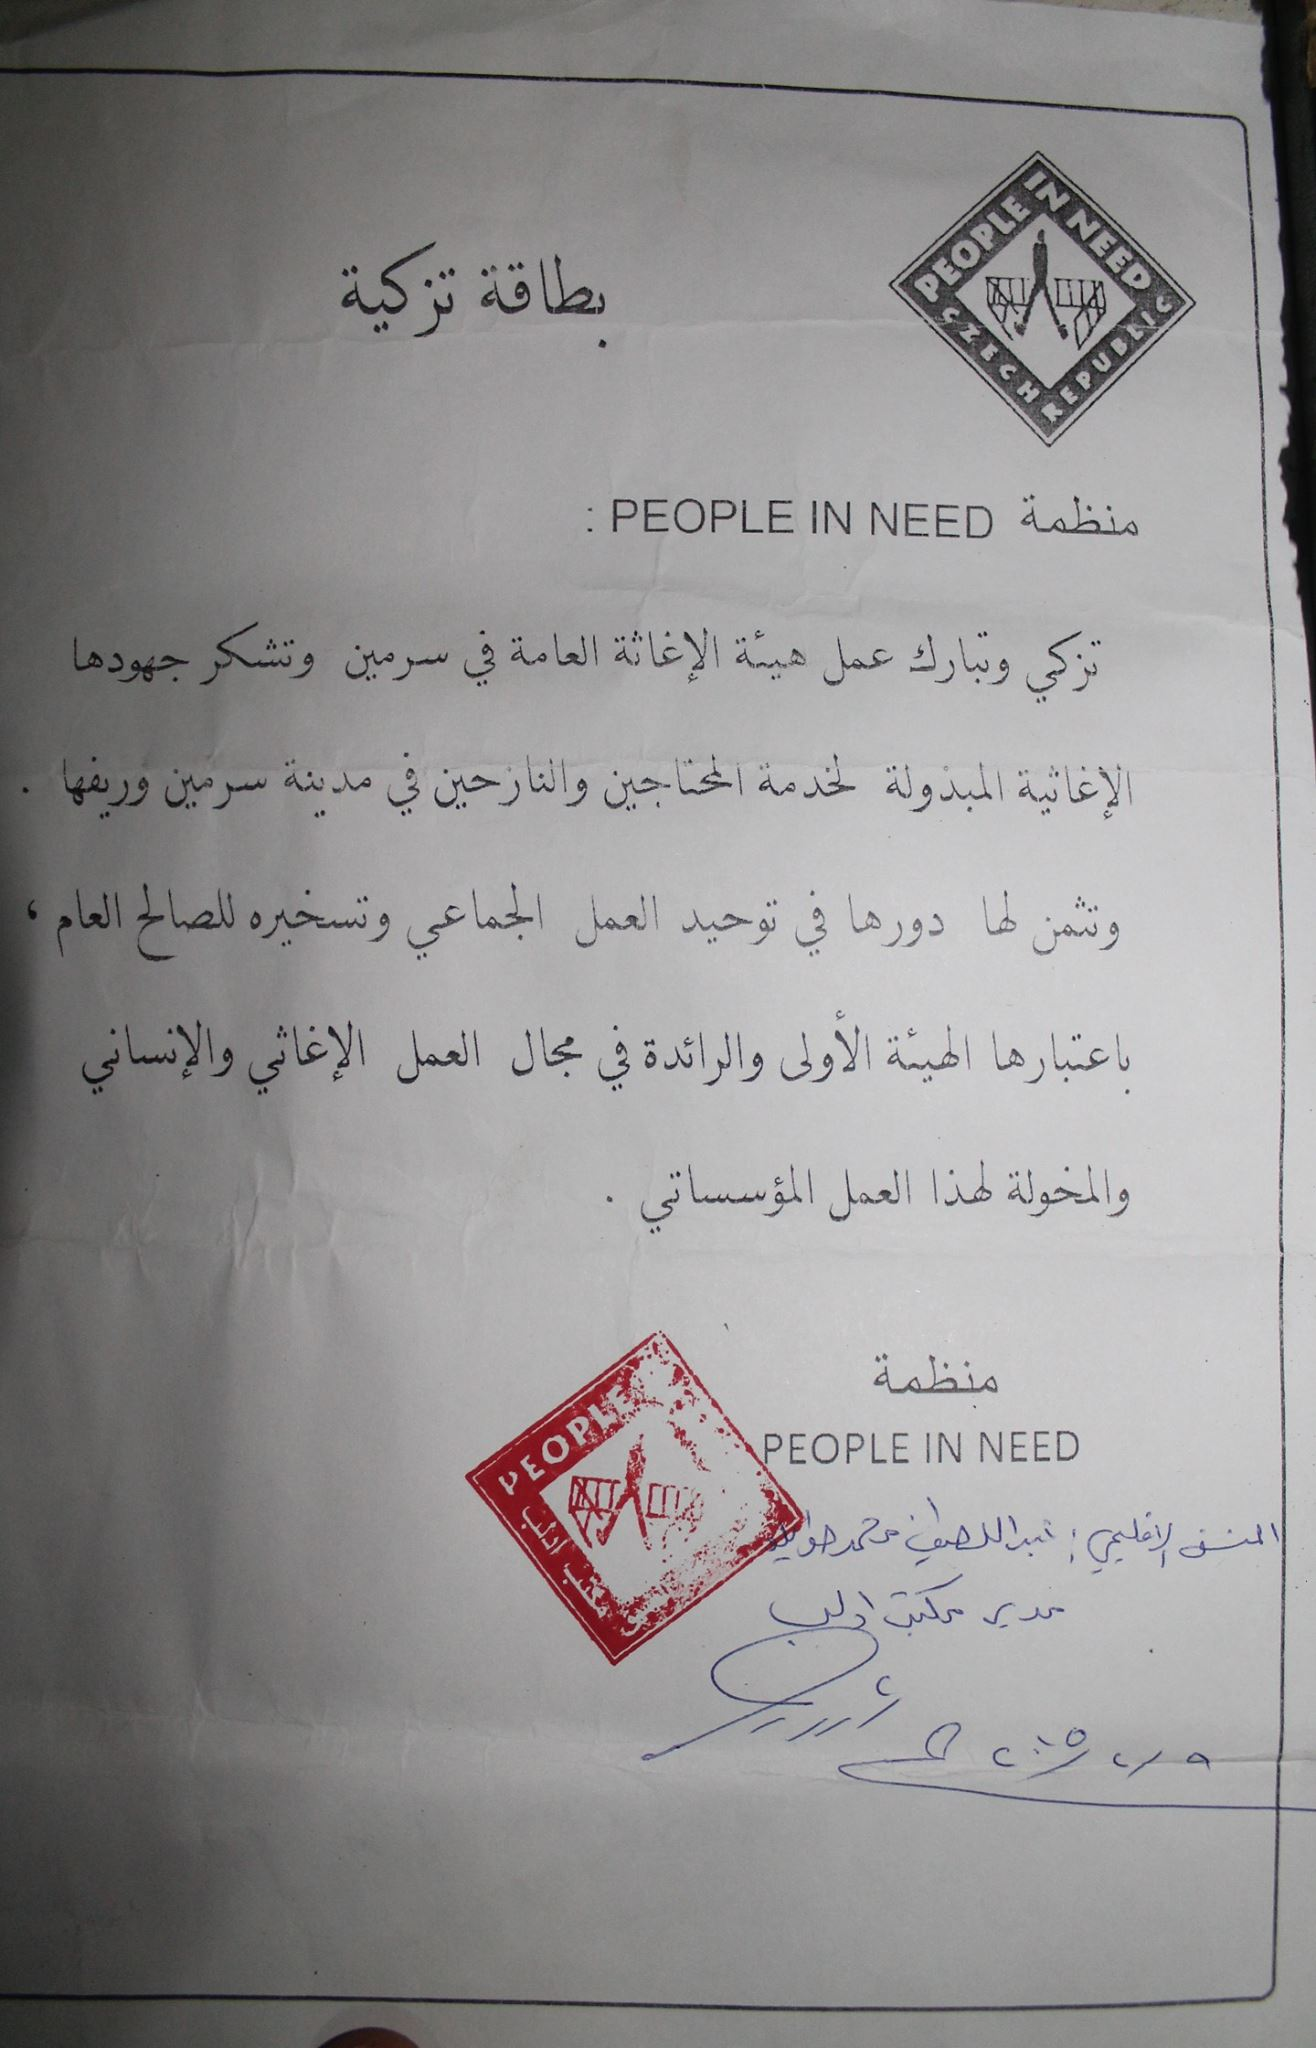 PEOPLE IN NEED
CZECH REPUBLIC
بطاقة تزكية
منظمة PEOPLE IN NEED :
تزكي وتبارك عمل هيئة الإغاثة العامة في سرمين وتشكر جهودها
الإغاثية المبذولة لخدمة المحتاجين والنازحين في مدينة سرمين وريفها .
وتثمن لها دورها في توحيد العمل الجماعي وتسخيره للصالح العام ،
باعتبارها الهيئة الأولى والرائدة في مجال العمل الإغاثي والإنساني
والمخولة لهذا العمل المؤسساتي .
منظمة
PEOPLE IN NEED
PEOPLE
مكتب ادلب
المنسق الإقليمي : محمد
مدير مكتب ادلب